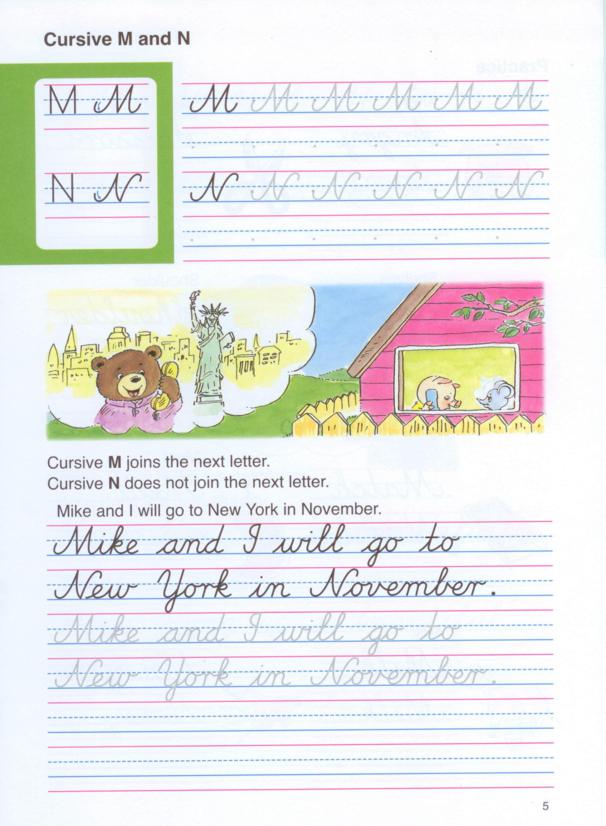 Cursive M and N
M M M M M M M M
N N N N N N N N
Cursive M joins the next letter.
Cursive N does not join the next letter.
Mike and I will go to New York in November.
Mike and I will go to
New York in November.
Mike and I will go to
New York in November.
5